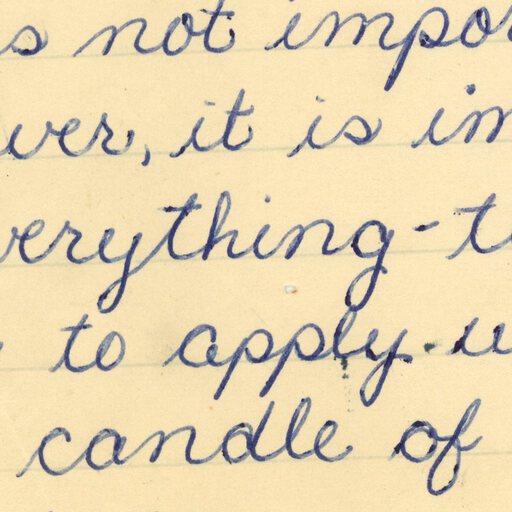 s not impor
ver, it is im
verything-t
to apply u
candle of